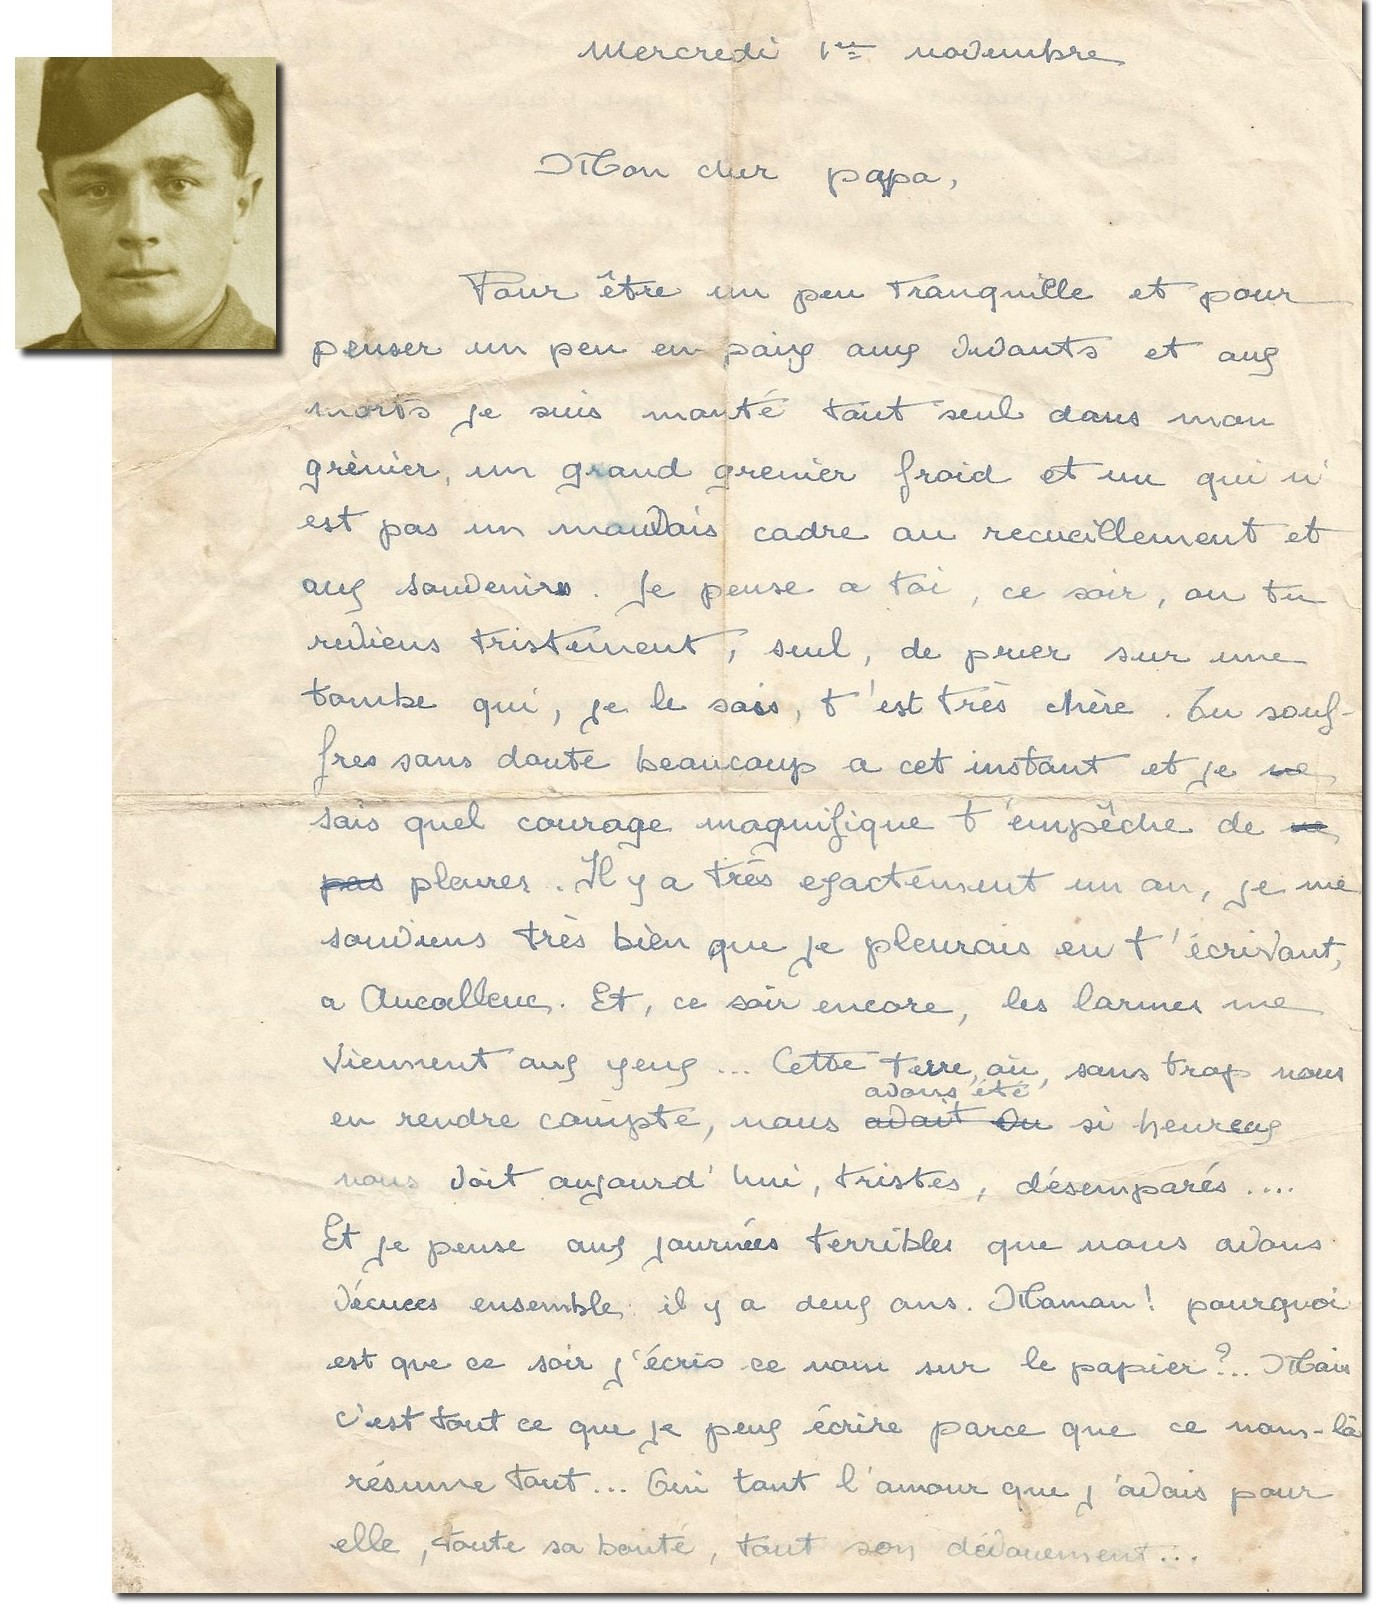 Mercredi 1er novembre
Mon cher papa,
Pour être un peu tranquille et pour
penser un peu en paix aux vivants et aux
morts je suis monté tout seul dans mon
grènier, un grand grenier froid et un qui n'
est pas un mauvais cadre au recueillement et
aux souvenirs. Je pense a toi, ce soir, ou tu
reviens tristement, seul, de prier sur une
tombe qui, je le sais, t'est très chère. Tu souf-
fres sans doute beaucoup a cet instant et je ne
sais quel courage magnifique t'empêche de ne
pas pleurer. Il y a très exactement un an, je me
souviens très bien que je pleurais en t'écrivant,
a Aucalleuc. Et, ce soir encore, les larmes me
viennent aux yeux ... Cette terre, où, sans trop nous
avons été
en rendre compte, nous avait vu si heureux
nous voit aujourd'hui, tristes, désemparés ....
Et je pense aux journées terribles que nous avons
vécues ensemble il y a deux ans. Maman! pourquoi
est que ce soir j'écris ce nom sur le papier?... Mais
c'est tout ce que je peux écrire parce que ce nom-là
résume tout... Oui tout l'amour que j'avais pour
elle, toute sa bonté, tout son dévouement...